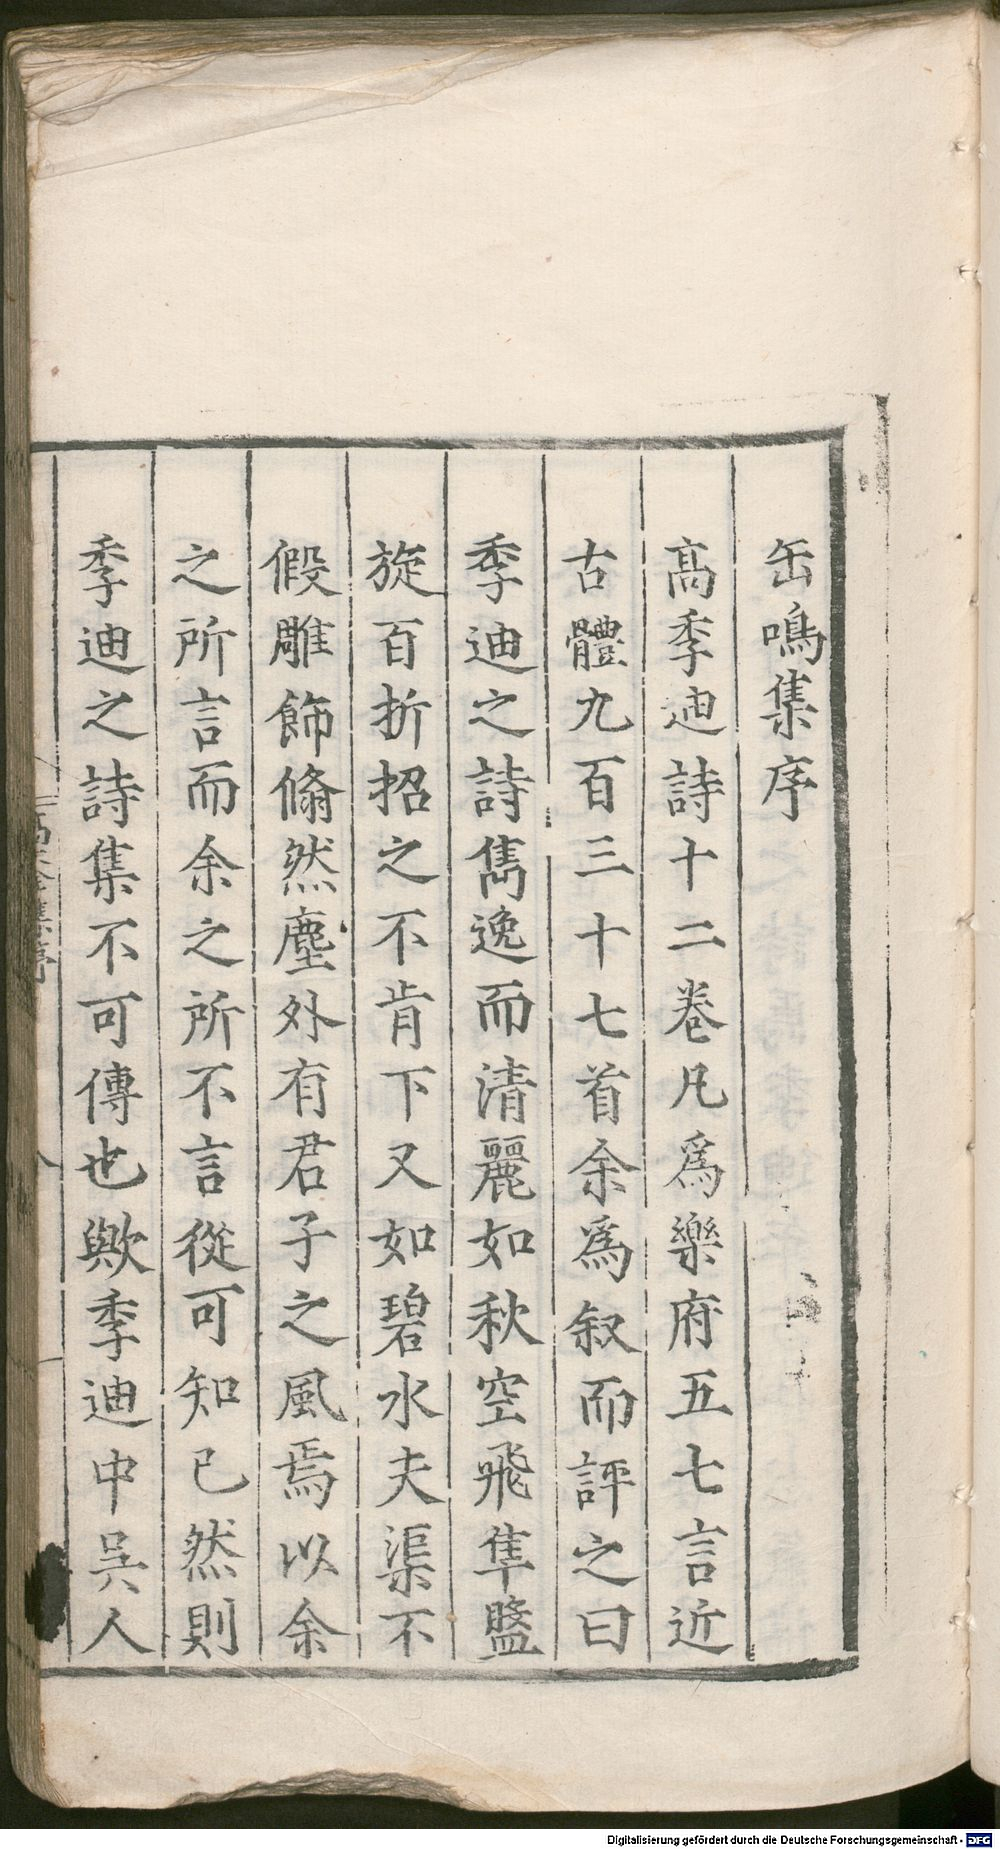 缶鳴集序
髙季迪詩十二卷凡爲樂府五七言近
古體九百三十七首余爲叙而評之曰
季迪之詩雋逸而清麗如秋空飛隼盤
旋百折招之不肯下又如碧水夫渠不
假雕飾翛然塵外有君子之風焉以余
之所言而余之所不言從可知已然則
季迪之詩集不可傳也歟季迪中吳人
Digitalisierung gefördert durch die Deutsche Forschungsgemeinschaft - DFG